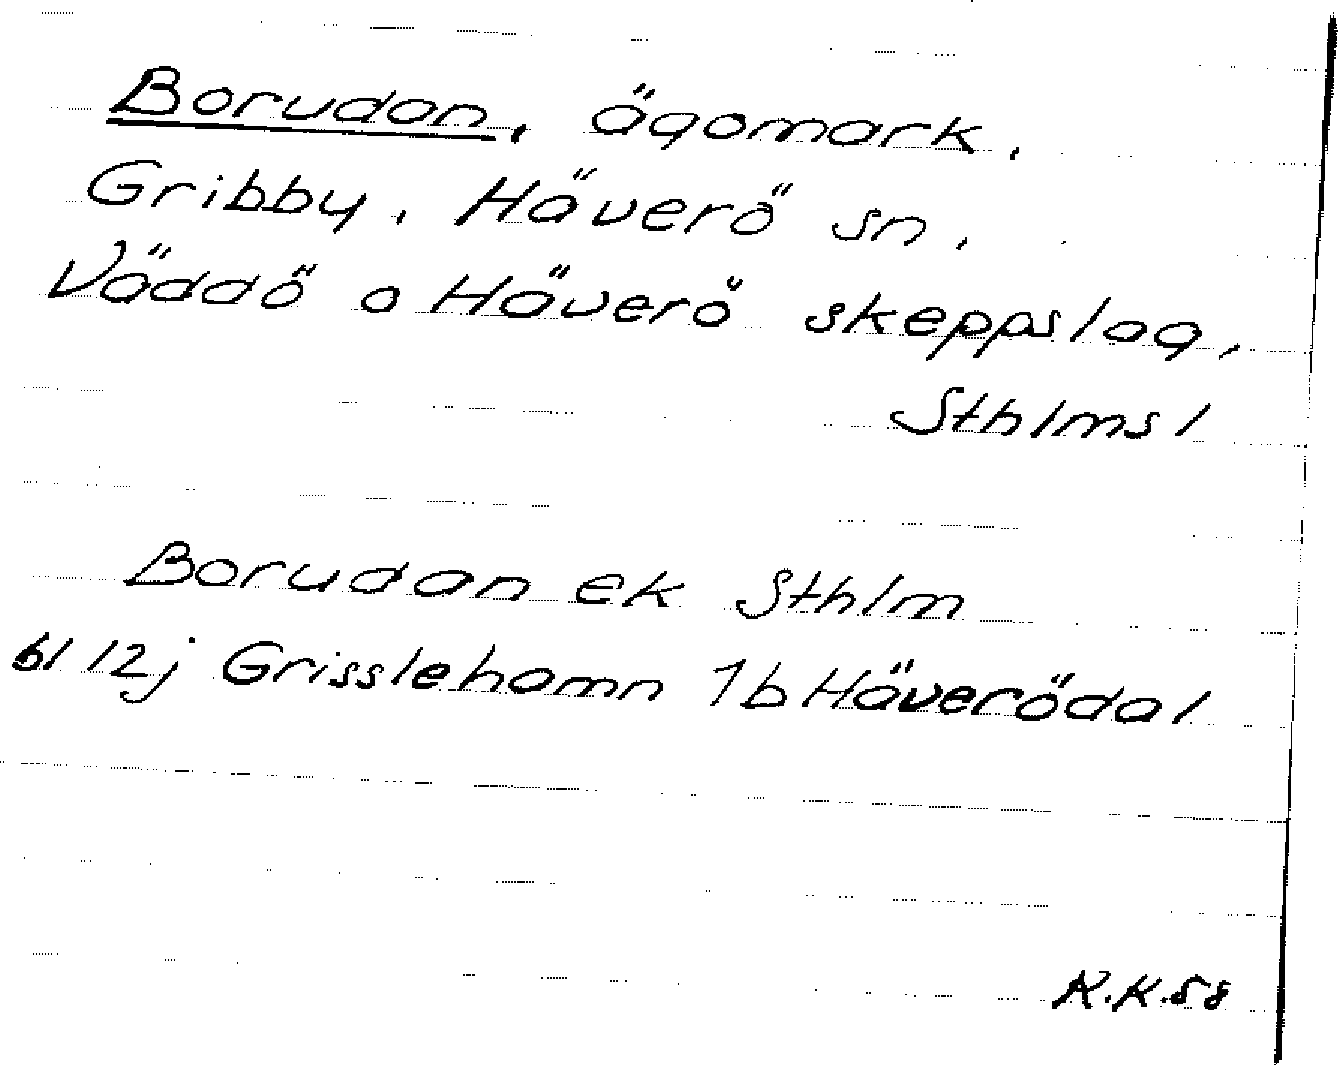 Borudan, ägomark,
Gribby, Häverö sn,
Väddö o Häverö skeppslag,
Sthlmsl
Borudan ek Sthlm
bl 12j Grisslehamn 1b Häverödal
K.K.58